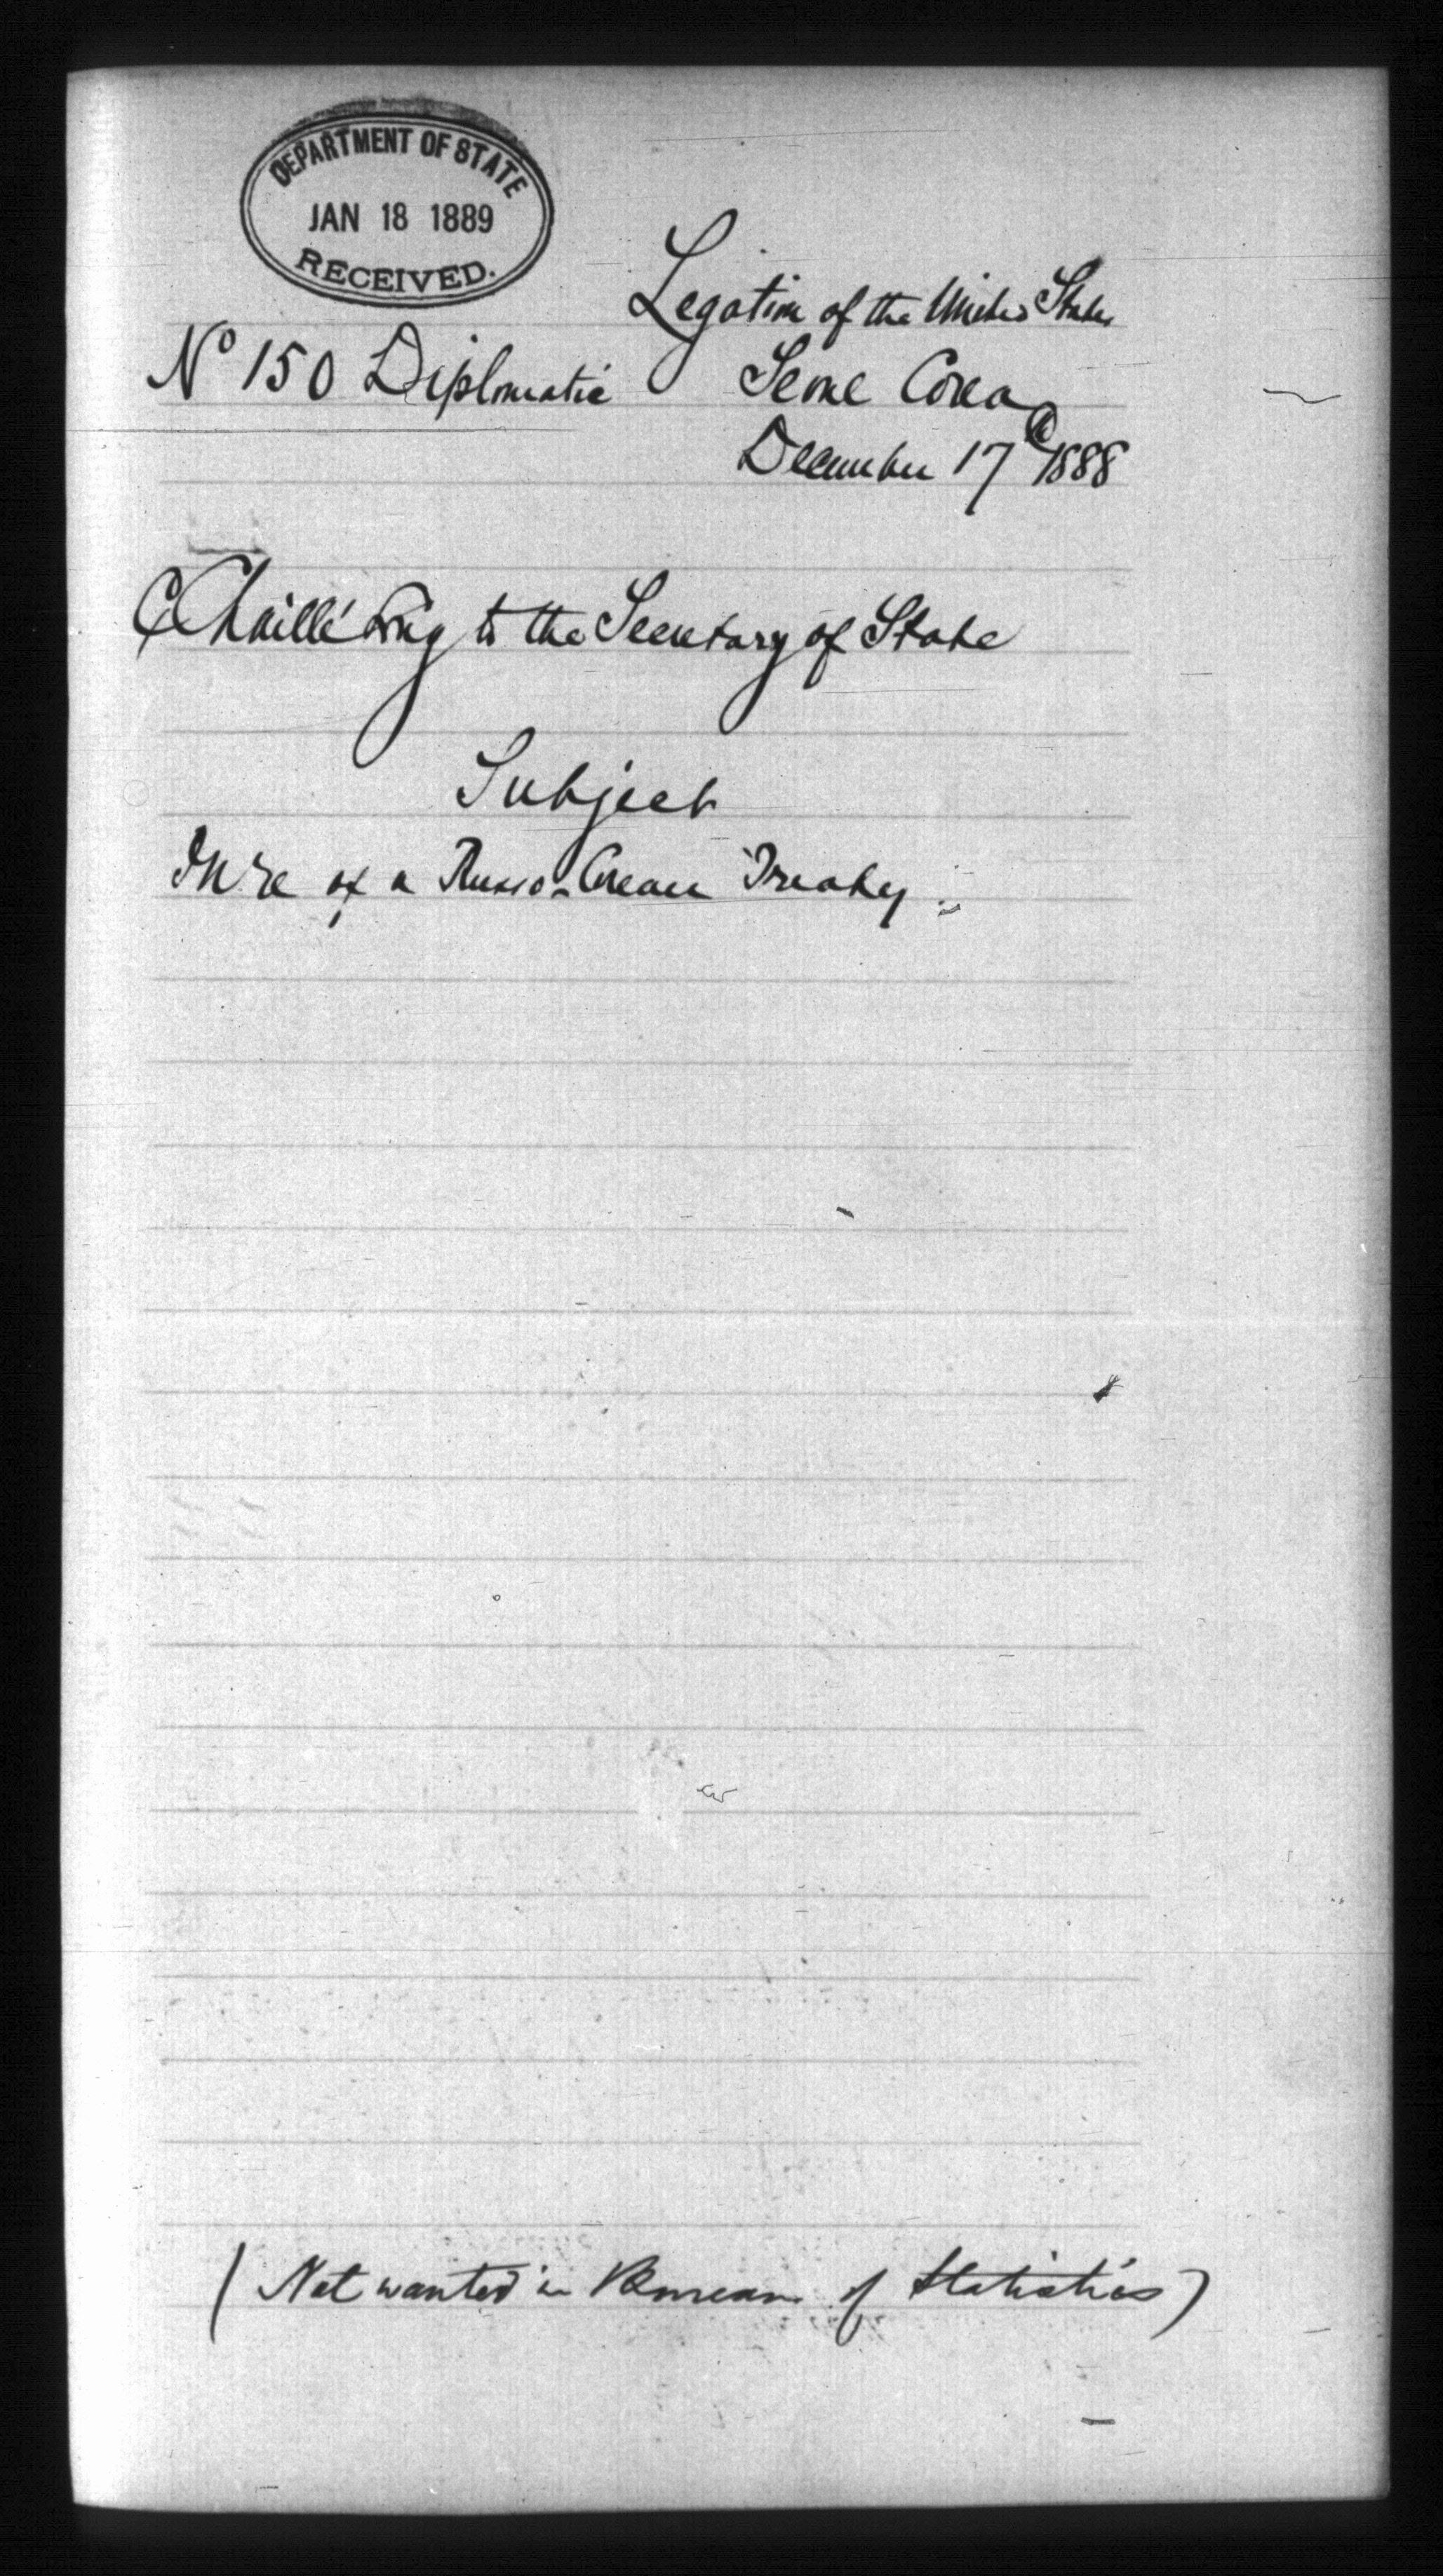 DEPARTMENT OF STATE
JAN 18 1889
RECEIVED.
Legation of the United States
No 150 Diplomatic
Seoul Corea
December 17th 1888
C Chaillé Long to the Secretary of State
Subject
In re of a Russo-Corean Treaty.
(Not wanted in Bureau of Statistics)